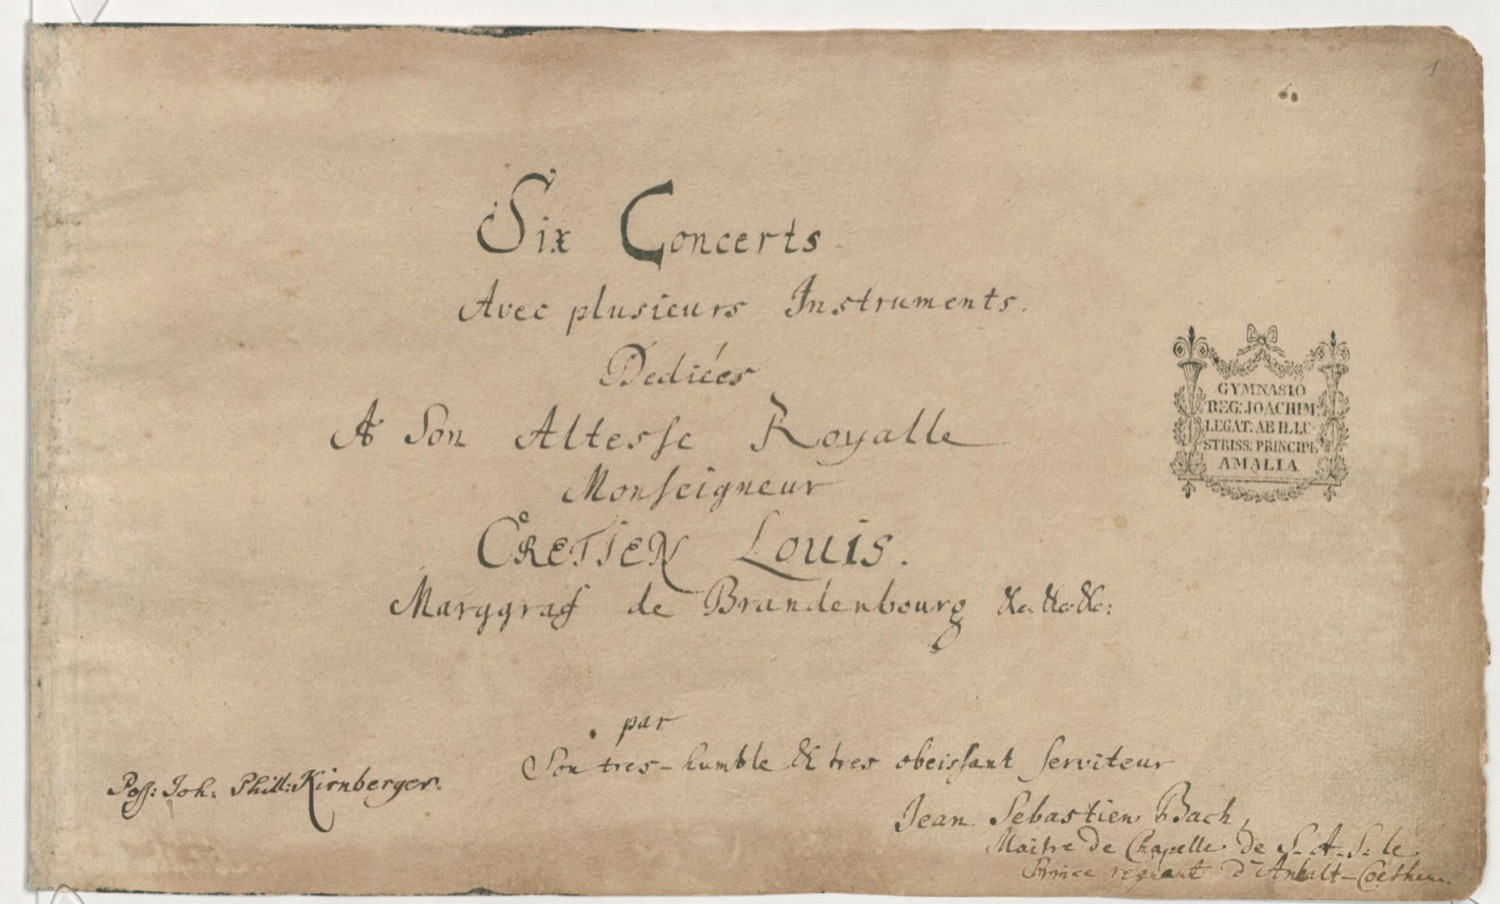 1
Six Concerts
Avec plusieurs Instruments.
Dediées
A Son Altesse Royalle
Monseigneur
CRETIEN LOUIS.
Marggraf de Brandenbourg &c. &c. &c:
par
Son tres-humble & tres obeissant serviteur
Jean Sebastien Bach,
Maitre de Chapelle de S. A. S. le
Prince regnant d'Anhalt-Coethen.
Poss: Joh. Phill: Kirnberger.
GYMNASIO
REG: JOACHIM:
LEGAT. AB ILLU
STRISS. PRINCIPE
AMALIA